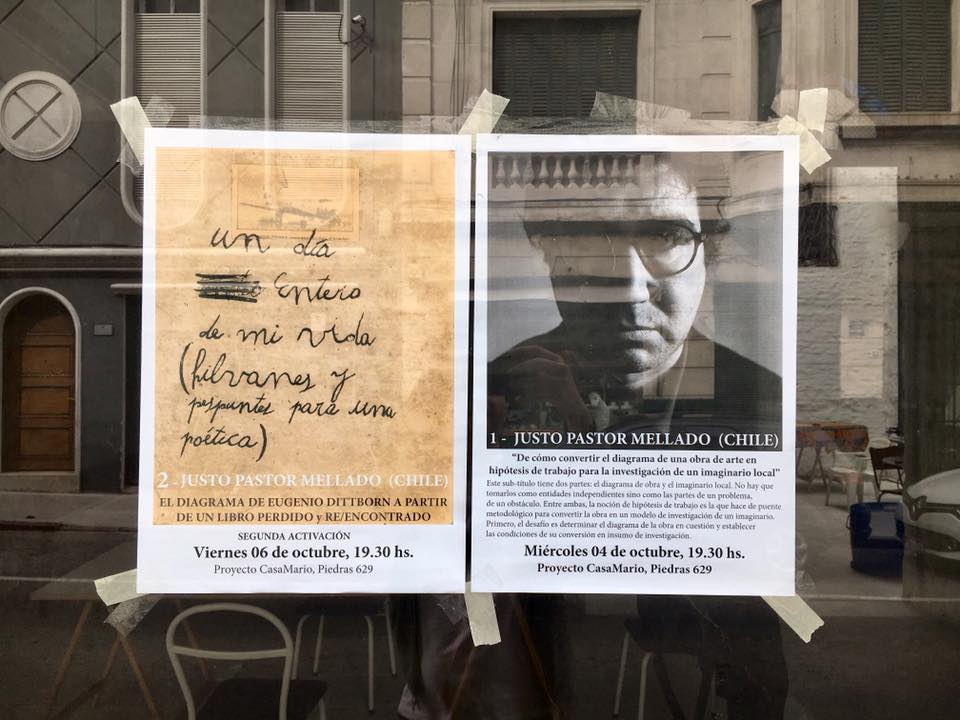 un día
Entero
de mi vida
(hilvanes y
pespuntes para una
poética)
2 - JUSTO PASTOR MELLADO (CHILE)
EL DIAGRAMA DE EUGENIO DITTBORN A PARTIR
DE UN LIBRO PERDIDO y RE/ENCONTRADO
SEGUNDA ACTIVACIÓN
Viernes 06 de octubre, 19.30 hs.
Proyecto CasaMario, Piedras 629
1 - JUSTO PASTOR MELLADO (CHILE)
“De cómo convertir el diagrama de una obra de arte en
hipótesis de trabajo para la investigación de un imaginario local”
Este sub-título tiene dos partes: el diagrama de obra y el imaginario local. No hay que
tomarlos como entidades independientes sino como las partes de un problema,
de un obstáculo. Entre ambas, la noción de hipótesis de trabajo es la que hace de puente
metodológico para convertir la obra en un modelo de investigación de un imaginario.
Primero, el desafío es determinar el diagrama de la obra en cuestión y establecer
las condiciones de su conversión en insumo de investigación.
Miércoles 04 de octubre, 19.30 hs.
Proyecto CasaMario, Piedras 629